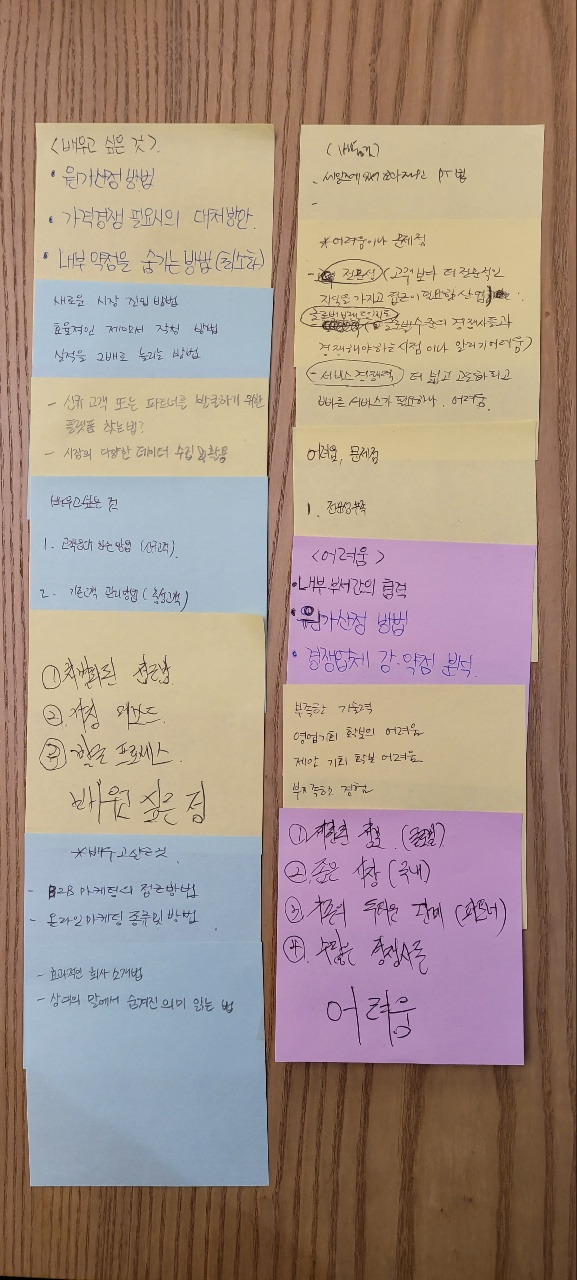 <배우고 싶은 것>
• 원가산정 방법
• 가격경쟁 필요시의 대처방안.
• 내부 약점을 숨기는 방법 (최소화)
새로운 시장 진입 방법
효율적인 제안서 작성 방법
실적을 2배로 늘리는 방법
- 신규 고객 또는 파트너를 발굴하기 위한
플랫폼 찾는법?
- 시장의 다양한 데이터 수집 및 활용
배우고싶은 것
1. 고객응대 하는 방법 (신규고객).
2. 기존고객 관리방법 (충성고객)
① 차별화된 접근법
② 시장
③ 프로세스.
배우고 싶은 점
*배우고싶은것.
- B2B 마케팅의 접근방법
- 온라인마케팅 종류및 방법
- 효과적인 회사 소개법
- 상대의 말에서 숨겨진 의미 읽는 법
- PT 법
-
*어려움이나 문제점
- 전문성 (고객보다 더 전문적인
지식을 가지고 접근이 필요한 산업)
경쟁해야하는 시점 이나 알리기 어려움)
- 서비스 경쟁력 더 넓고 고도화 되고
빠른 서비스가 필요하나, 어려움.
어려움, 문제점
1. 전문성부족
<어려움>
• 내부 부서간의 협력
• 원가산정 방법
• 경쟁업체 강·약점 분석.
부족한 기술력
영업기회 확보의 어려움
제안 기회 확보 어려움
부족하는 경험
① (글로벌)
② 좁은 시장 (국내)
③ (파트너)
④ 수많은 경쟁사들
어려움